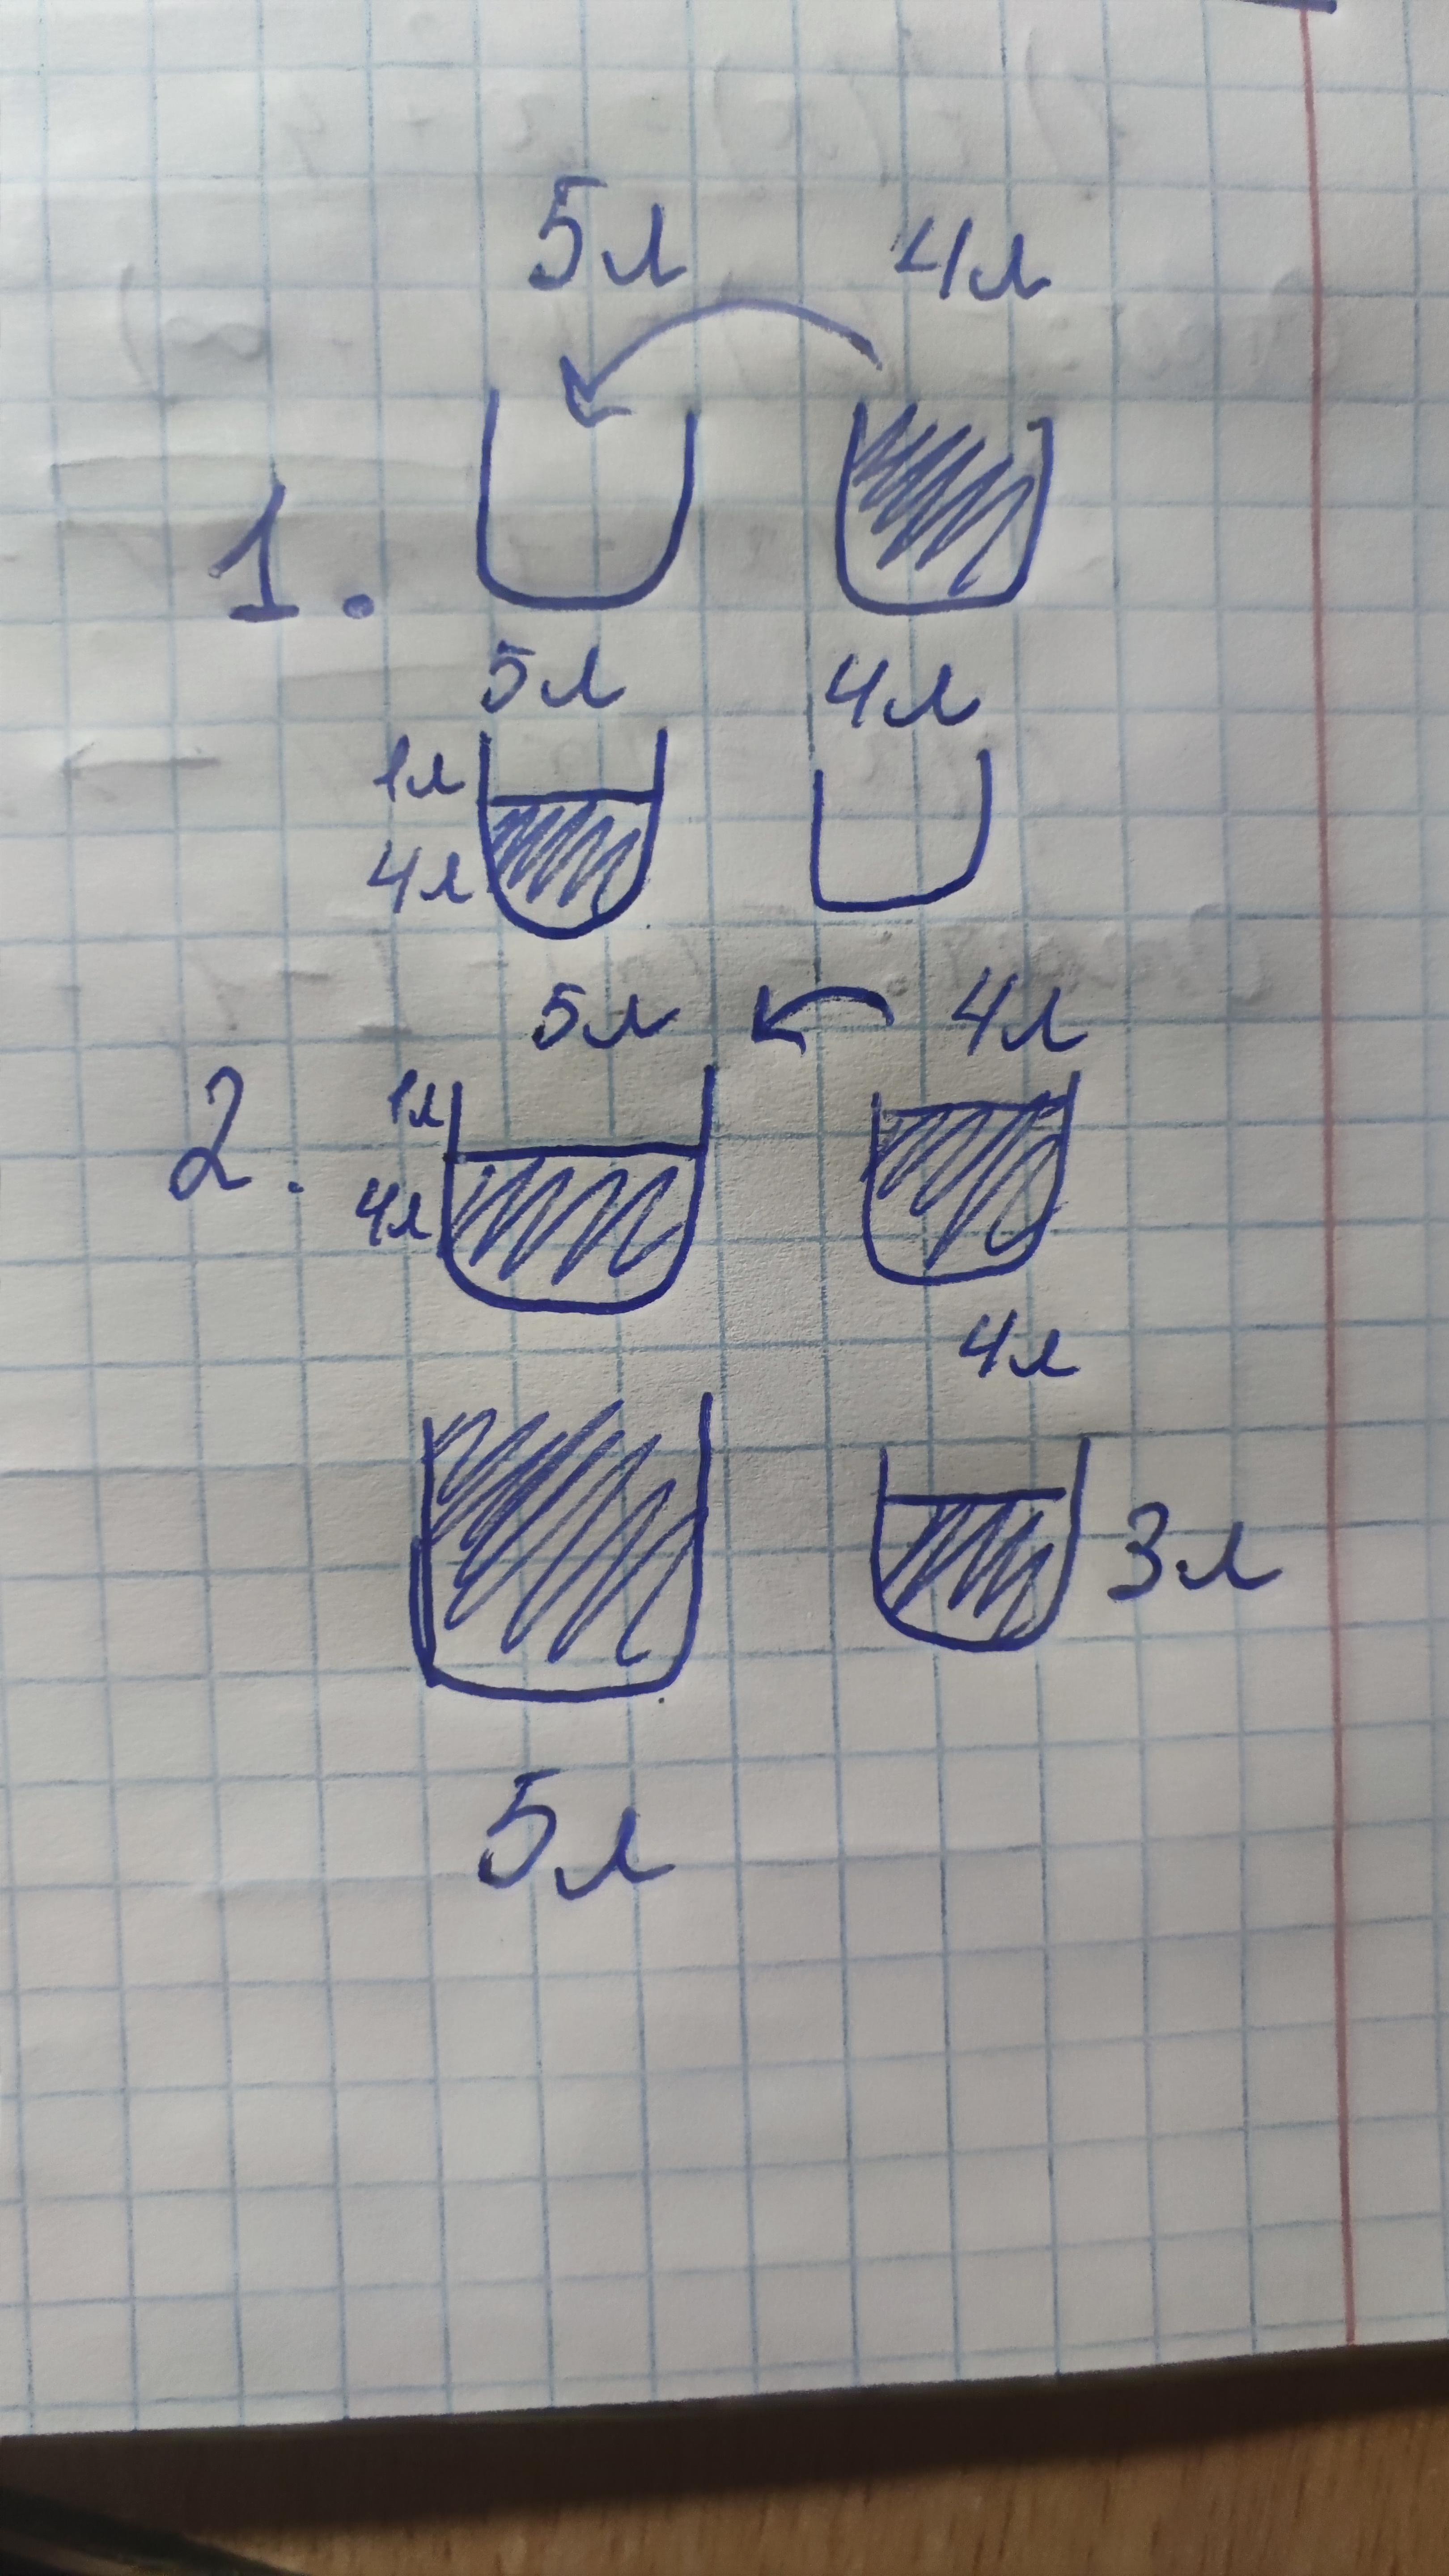 5л 4л
1.
5л 4л
1л
4л
5л 4л
2.
1л
4л
4л
3л
5л